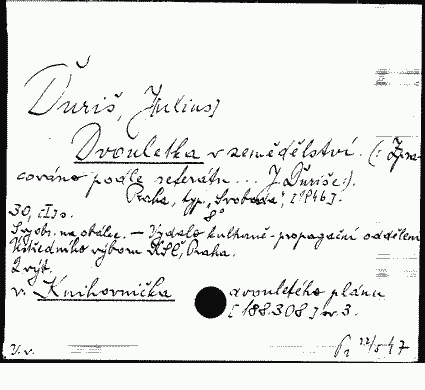 Ďuriš, Julius]
Dvouletka v zemědělství. (: Zpra-
cováno podle referátu ... J. Ďuriše:).
Praha, typ. Svoboda, [1946].
8°
30, [I] s.
S vyobr. na obálce. — Vydalo kulturně-propagační oddělení
Ústředního výboru KSČ, Praha.
2. výt.
v. Knihovnička dvouletého plánu
[188.308] sv. 3.
47